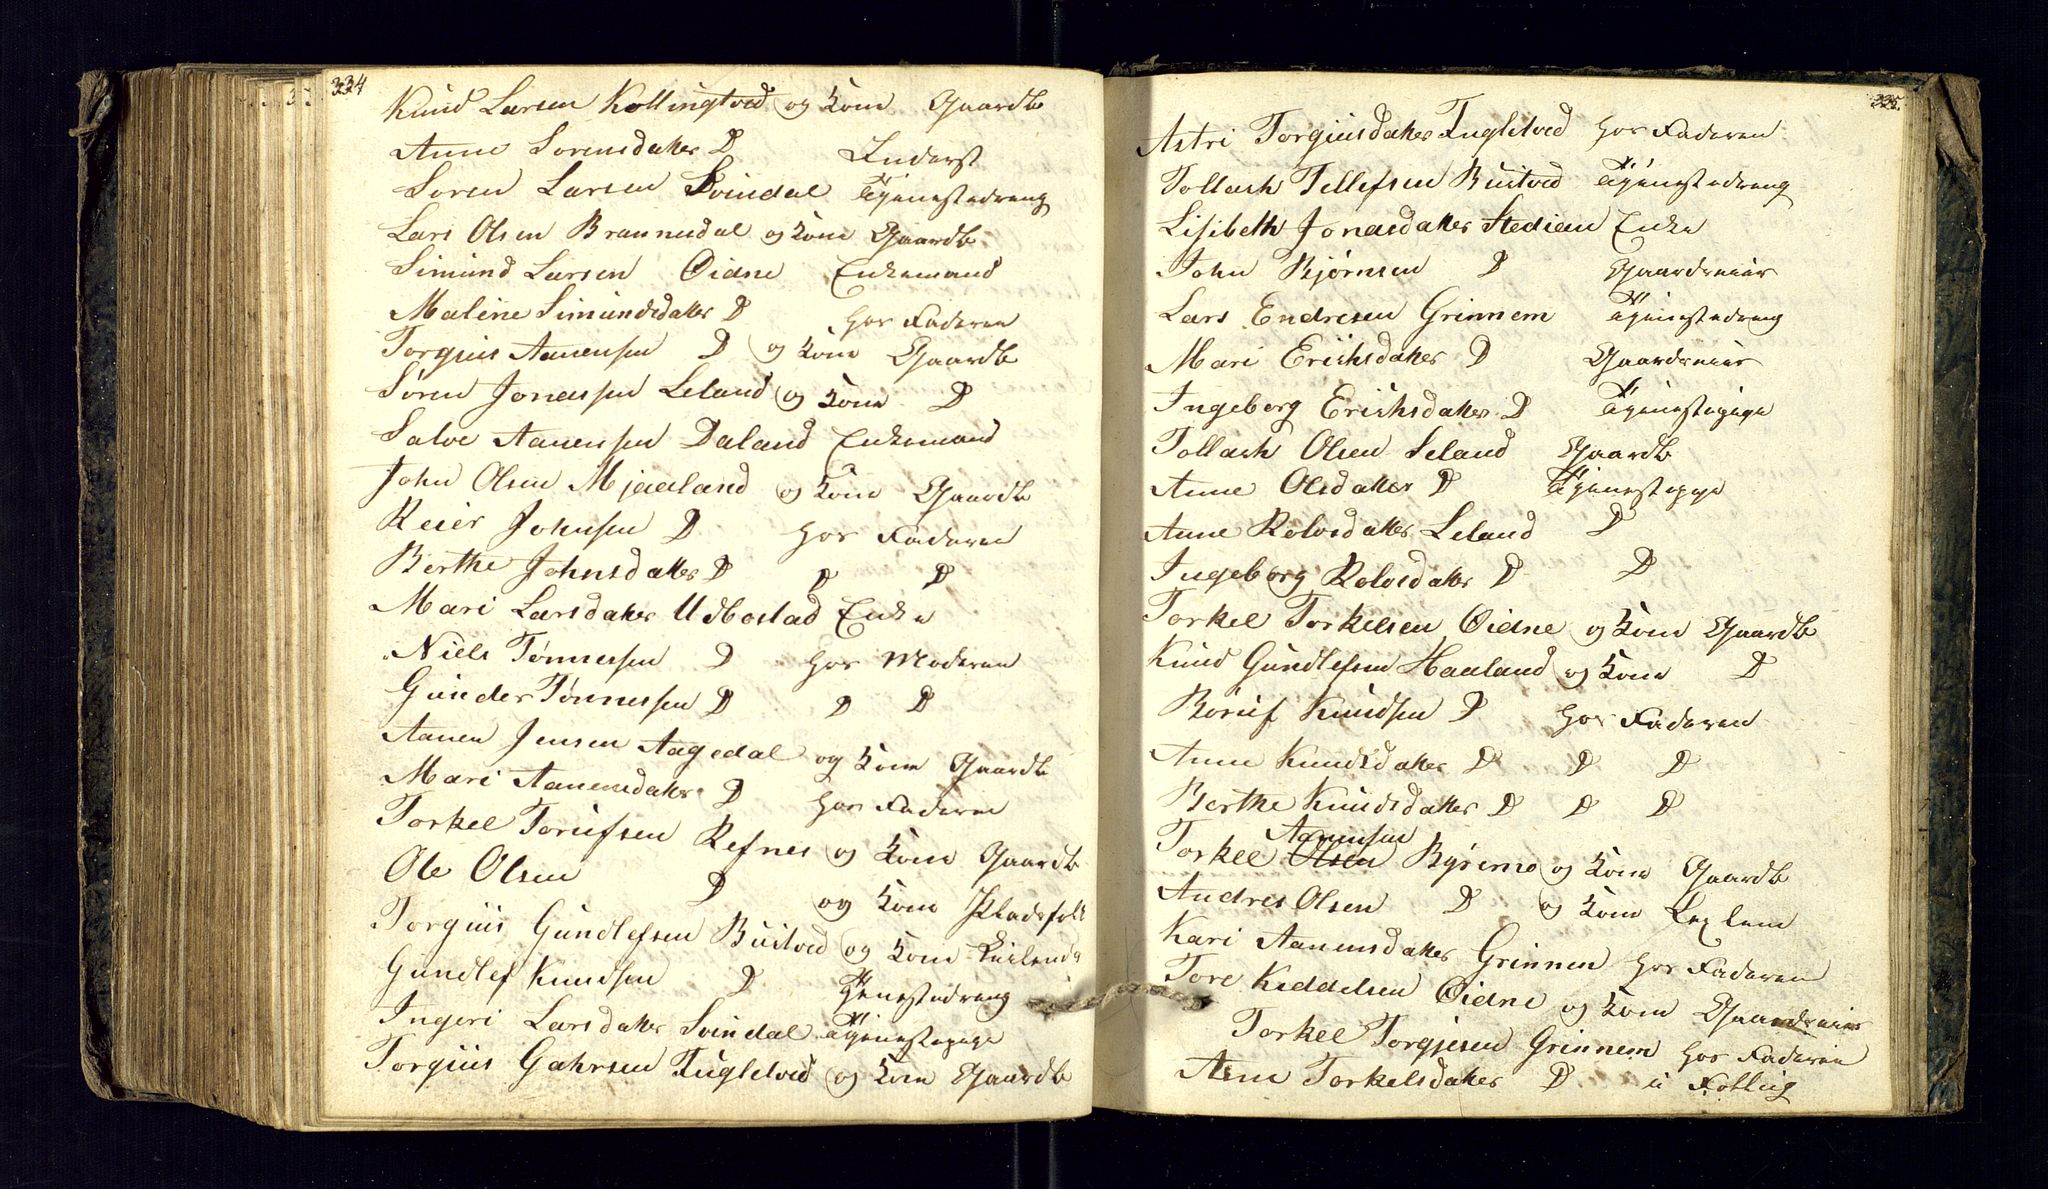 334
Knud Larsen Kollingtved og Kone Gaardb
Anne Sorensdatter D Inderst
Soren Larsen Svindal Tjenestedreng
Lars Olsen Brannesdal og Kone Gaardb
Simund Larsen Øidne Enkemand
Maline Simundsdatter D hos Faderen
Torgius Aanensen D og Kone Gaardb
Søren Jonassen Leland og Kone D
Salve Aanensen Daland Enkemand
John Olsen Mjaaland og Kone Gaardb
Reier Johnsen D hos Faderen
Berthe Johnsdatter D D D
Mari Larsdatter Udbostad Enke
Niels Tønnessen D hos Moderen
Gunder Tønnessen D D D
Aanen Jensen Aagedal og Kone Gaardb
Mari Aanensdatter D hos Faderen
Torkel Torufsen Refnes og Kone Gaardb
Ole Olsen D og Kone Pladsfolk
Torgius Gundlefsen Bustved og Kone
Gundlef Knudsen D Tjenestedreng
Ingeri Larsdatter Svindal Tjenestepige
Torgius Gahrsen Fugletved og Kone Gaardb
335
Astri Torgiusdatter Fugletved hos Faderen
Tollach Tellefsen Bustved Tjenestedreng
Lisibeth Jonasdatter Stedien Enke
John Bjørnsen D Gaardmeier
Lars Endresen Grinnem Tjenestedreng
Mari Erichsdatter D
Ingeborg Erichsdatter D Tjenestepige
Tollach Olsen Leland Gaardb
Anne Olsdatter D Tjenestepige
Anne Rolvsdatter Leland D
Ingeborg Rolvsdatter D D
Torkel Torkelsen Øidne og Kone Gaardb
Knud Gundlefsen Haaland og Kone D
Boruf Knudsen D hos Faderen
Anne Knudsdatter D D D
Berthe Knudsdatter D D D
Aanensen
Torkel Olsen Byremo og Kone Gaardb
Andres Olsen D og Kone
Kari Aanensdatter Grinnen hos Faderen
Tore Keddelsen Øidne og Kone
Torkel Torgjesen Grinnem hos Faderen
Ane Torkelsdatter D